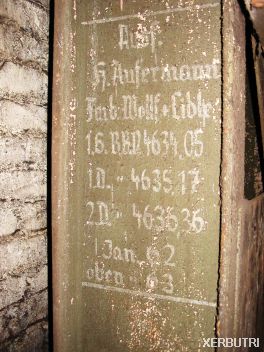 Aufs.
H. Aufermann
Fmb. Wolf +
1.6. 4634,05
1.D. " 4635,17
2.D. " 4636,36
Jan. 62
oben " 63
XERBUTRI